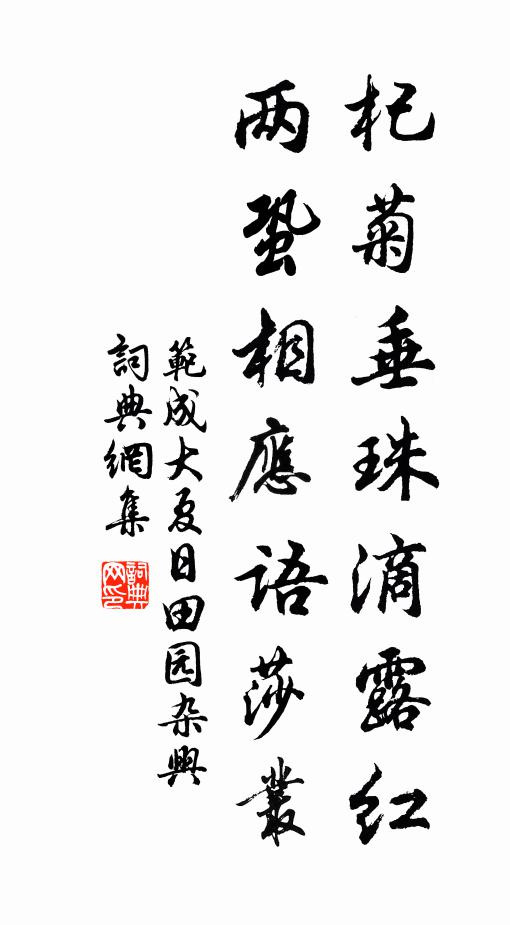 杞菊垂珠滴露红
两蛩相應語莎叢
範成大夏日田园杂興
詞典網集
詞典网印